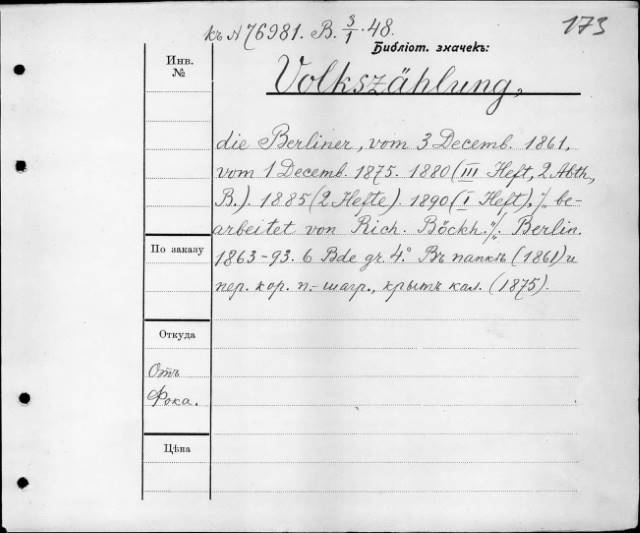 къ N 76981. В. 3/1.48.
173
Библіот. значекъ:
Инв.
№
Volkszählung,
die Berliner, vom 3 Decemb. 1861,
vom 1 Decemb. 1875. 1880 (III Heft, 2 Abth,
B.). 1885 (2 Hefte). 1890 (I Heft). ./. be-
arbeitet von Rich. Böckh. ./. Berlin.
По заказу
1863-93. 6 Bde gr. 4° Въ папкѣ (1861) и
пер. кор. п.-шагр., крытъ кал. (1875).
Откуда
Отъ
Фока.
Цѣна